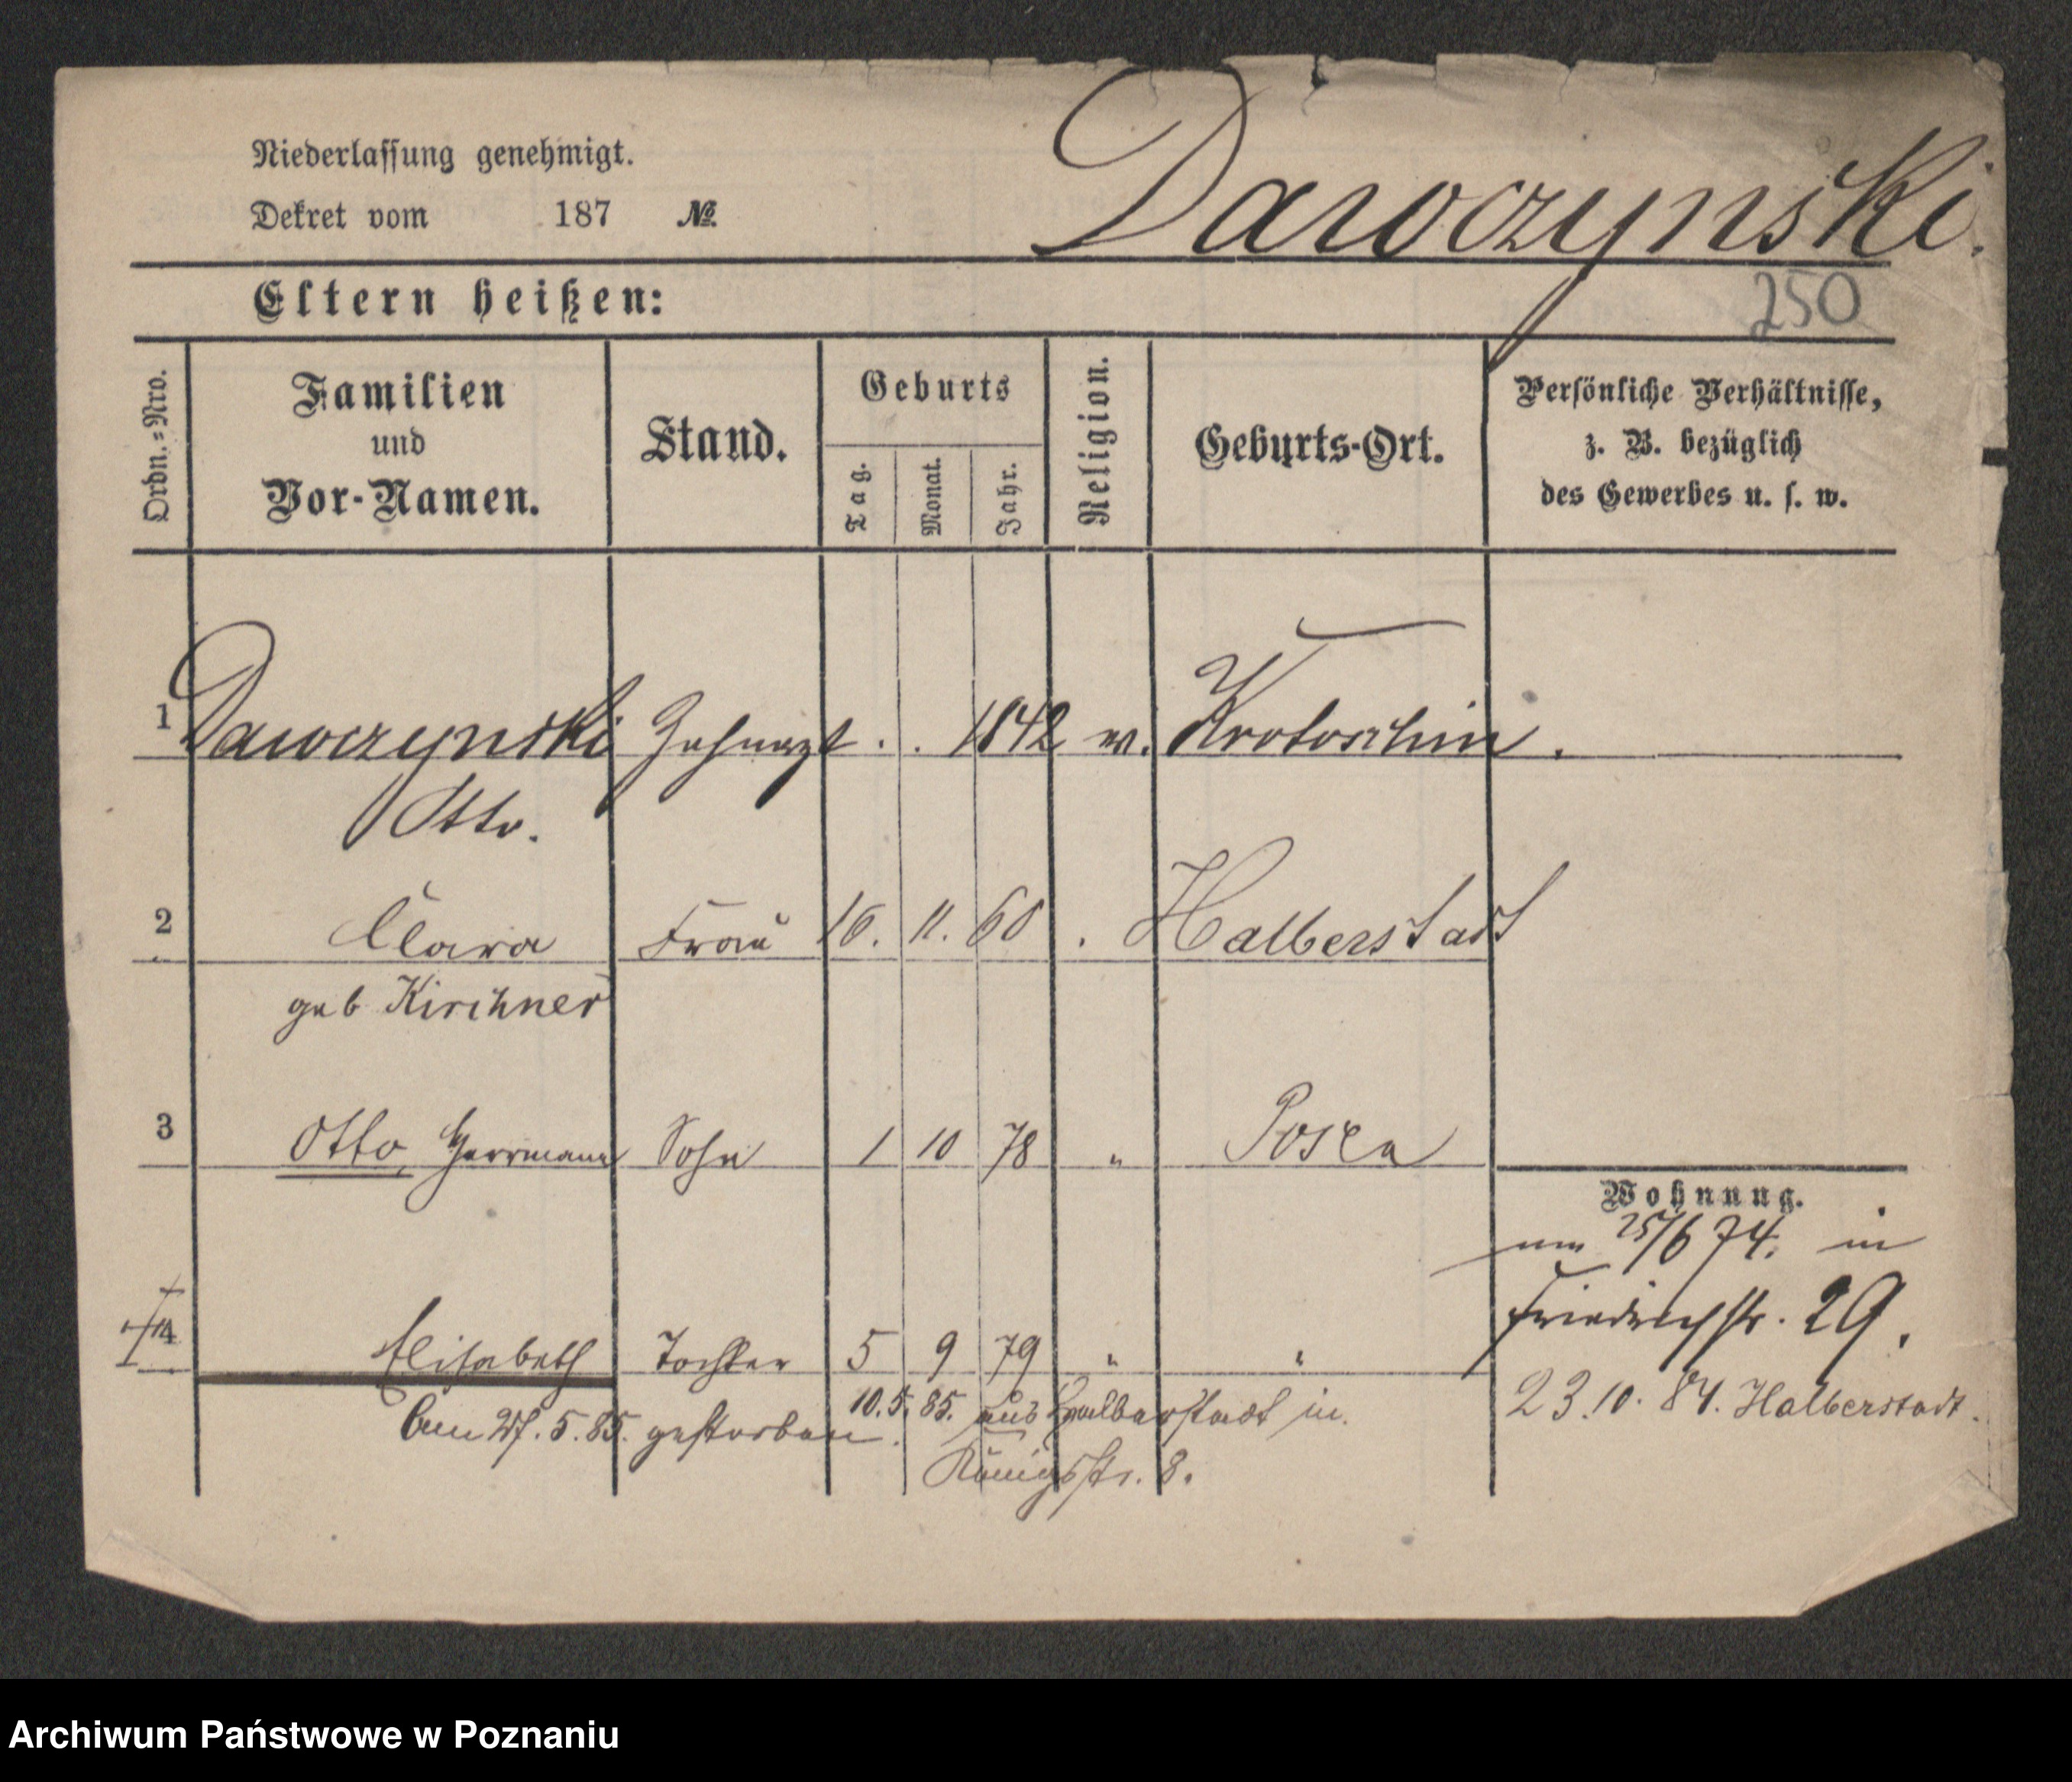 Niederlassung genehmigt.
Dekret vom 187 №
Dawczynski.
Eltern heißen:
250
Ordn.=Nro.
Familien
und
Vor-Namen.
Stand.
Geburts
Tag.
Monat.
Jahr.
Religion.
Geburts-Ort.
Persönliche Verhältnisse,
z. B. bezüglich
des Gewerbes u. s. w.
1 Dawczynski Zahnarzt . . 1842 Krotoschin.
Otto.
2 Clara Frau 16. 11. 60 . Halberstadt
geb Kirchner
3 Otto, Herrmann Sohn 1 10 78 " Posen
Wohnung.
25/6 74. in
Friedrichstr. 29.
4 Elisabeth Tochter 5 9 79 " "
23.10.84. Halberstadt.
10.5.85. aus Halberstadt in
Am 5.85. gestorben.
Königsstr. 8.
Archiwum Państwowe w Poznaniu